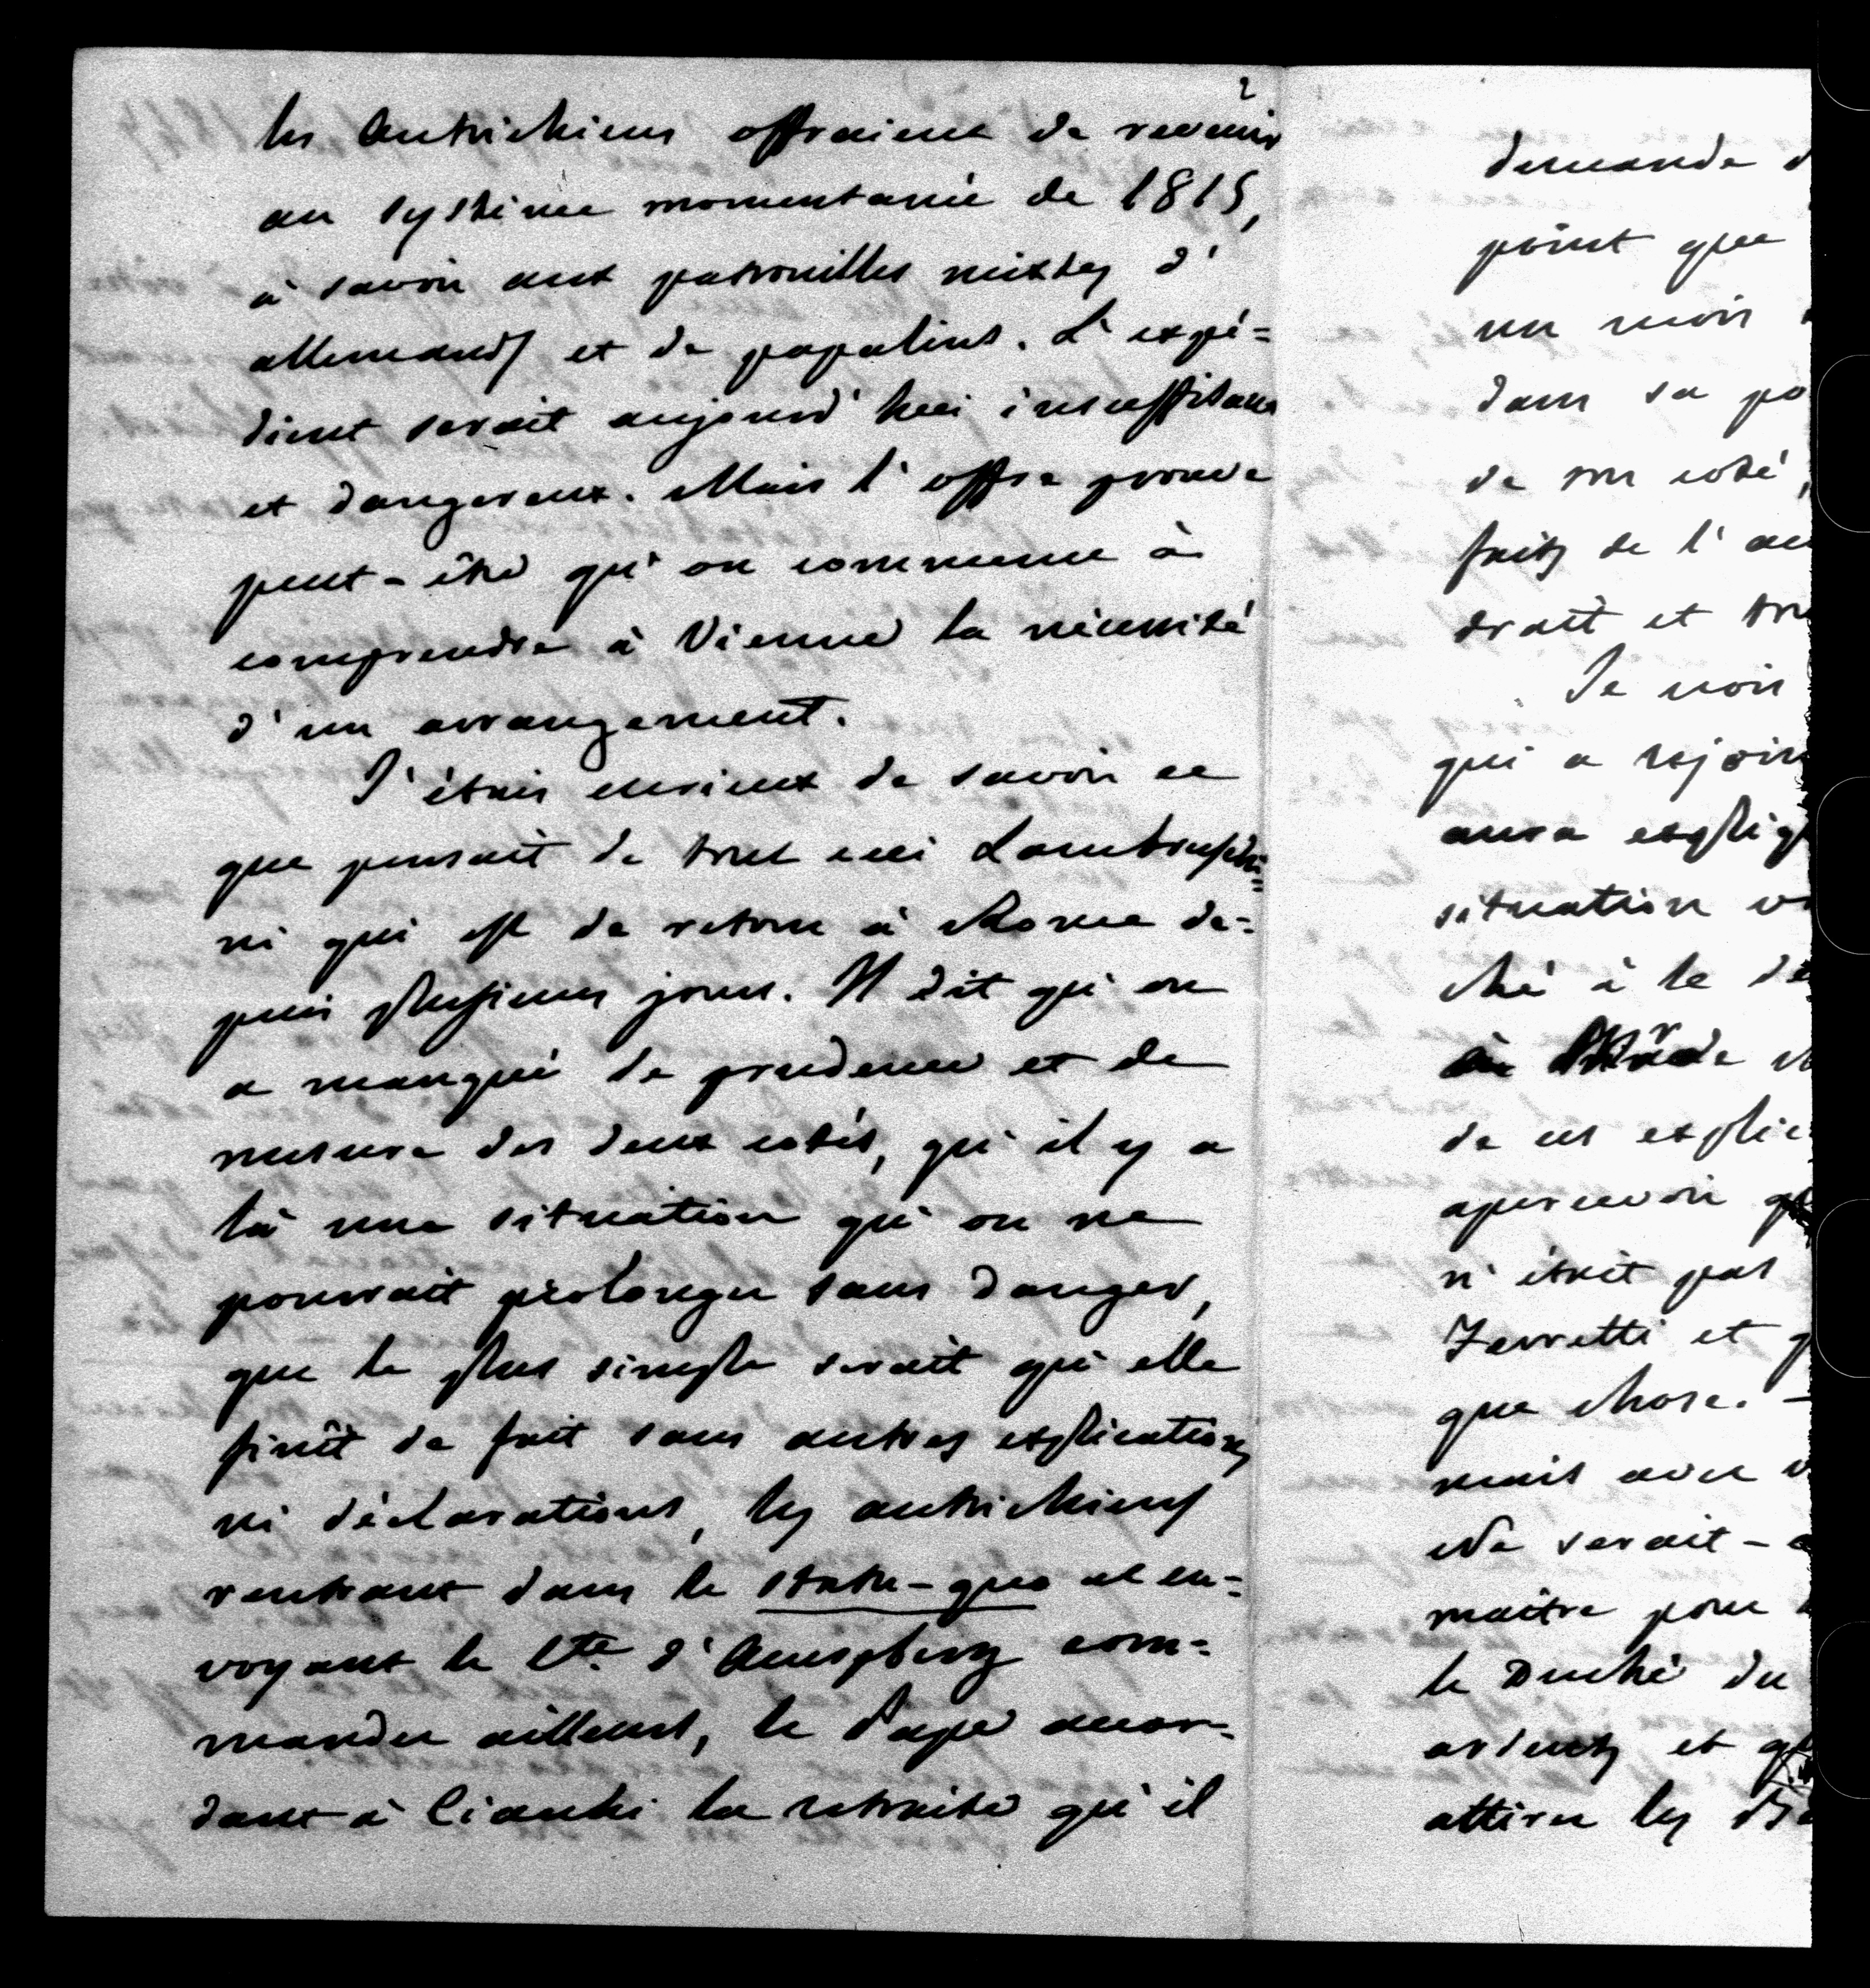 2
les Autrichiens offraient de revenir
au système momentané de 1815,
à savoir aux patrouilles mixtes d'
allemands et de papalins. L'expé=
dient serait aujourd'hui insuffisant
et dangereux. Mais l'offre prouve
peut-être qu'on commence à
comprendre à Vienne la nécessité
d'un arrangement.
J'étais curieux de savoir ce
que pensait de tout ceci Lambruschi=
ni qui est de retour à Rome de=
puis plusieurs jours. Il dit qu'on
a manqué de prudence et de
mesure des deux cotés, qu'il y a
là une situation qu'on ne
pourrait prolonger sans danger,
que le plus simple serait qu'elle
finît de fait sans autres explications
ni déclarations, les autrichiens
rentrant dans le statu-quo et en=
voyant le Cte d'Auespberg com=
mander ailleurs, le Pape accor=
dant à Ciacchi la retraite qu'il
demande d
point que
un mois
dans sa po
de son coté,
faits de l'au
droit et tou
Je vois
qui a rejoin
aura expliqu
situation v
ché à le dé
de
de ces explic
apercevoir qu
n'était pas
Ferretti et q
que chose. -
mais avec v
Ne serait-
maître pour
le Duché du
ardents et qu
attirer les